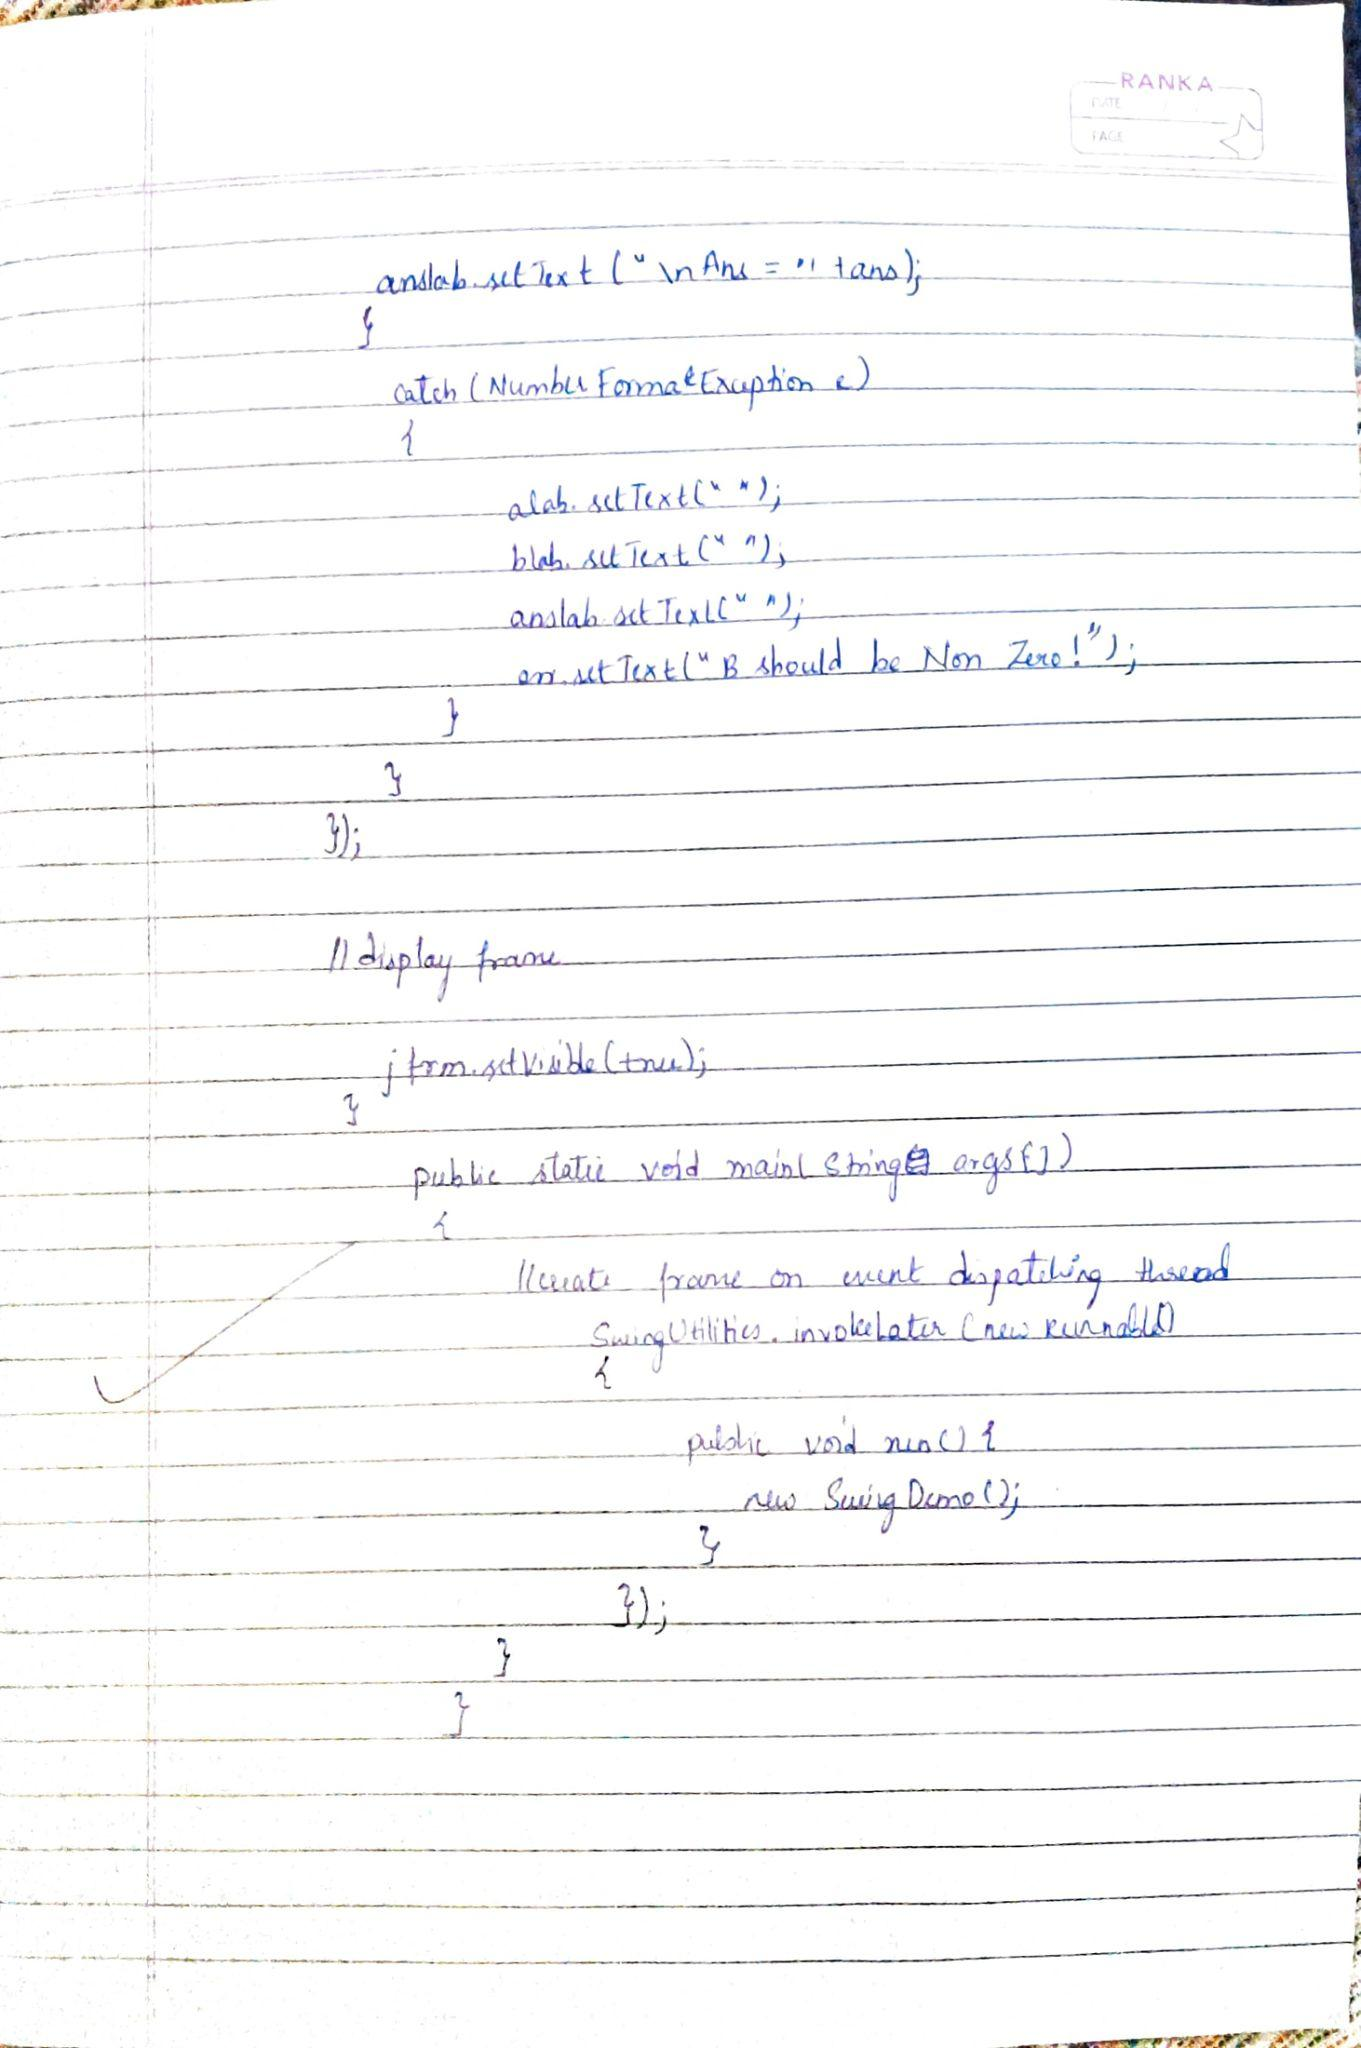 RANKA
DATE
PAGE
anslab.setText ("\nAns = " +ans);
}
catch (Number FormatException e)
{
alab.setText(" ");
blab.setText(" ");
anslab.setText(" ");
err.setText("B should be Non Zero!");
}
}
});
//display frame
jfrm.setVisible(true);
}
public static void main( String args[])
{
//create frame on event dispatching thread
SwingUtilities.invokeLater (new Runnable()
{
public void run() {
new SwingDemo();
}
});
}
}